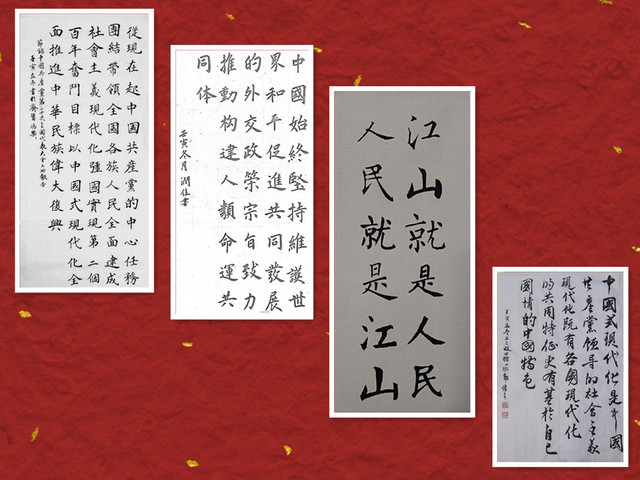 從現在起中國共產黨的中心任務
團結帶領全國各族人民全面建成
社會主義現代化強國實現第二個
百年奮鬥目標以中國式現代化全
面推進中華民族偉大復興
節錄中國共產黨第二十次全國代表大會上的報告
壬寅立冬書於
中國始終堅持維護世
界和平促進共同發展
的外交政策宗旨致力
推動構建人類命運共
同体
壬寅冬月 潤佳書
江山就是人民
人民就是江山
中國式現代化是中國
共產黨領導的社會主義
現代化既有各國現代化
的共同特征更有基於自己
國情的中國特色